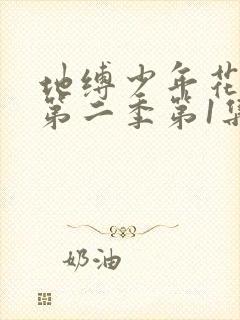 地缚少年花
第二季第1集
奶油